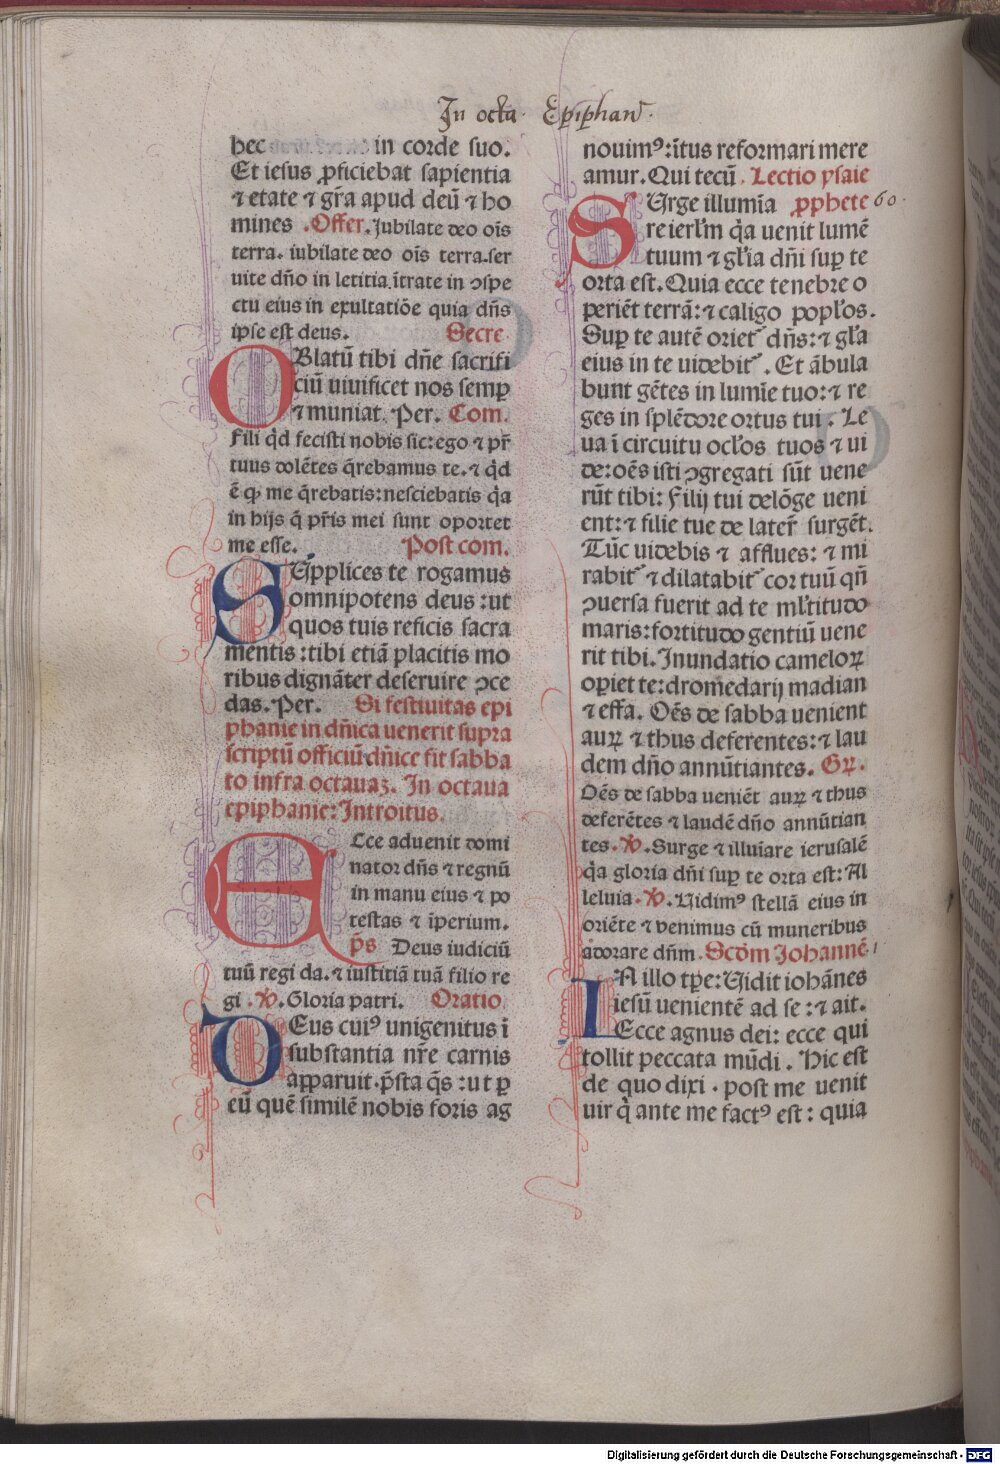 In octa. Epiphan̄.
hec in corde suo.
Et iesus ꝓficiebat sapientia
⁊ etate ⁊ gr̄a apud deū ⁊ ho
mines .Offer. Jubilate deo oīs
terra. iubilate deo oīs terra.ser
uite dn̄o in letitia.ītrate in ↄspe
ctu eius in exultatiōe quia dn̄s
ipse est deus. Secre.
OBlatū tibi dn̄e sacrifi
ciū uiuificet nos semꝑ
⁊ muniat. Per. Com.
Fili qd̄ fecisti nobis sic:ego ⁊ pr̄
tuus dolētes q̄rebamus te.⁊ qd̄
ē qꝫ me q̄rebatis:nesciebatis q̄a
in hijs q̄ pr̄is mei sunt oportet
me esse. Post com.
SUpplices te rogamus
omnipotens deus:ut
quos tuis reficis sacra
mentis:tibi etiā placitis mo
ribus dignāter deseruire ↄce
das. Per. Si festiuitas epi
phanie in dn̄ica uenerit supra
scriptū officiū dn̄ice fit sabba
to infra octauaꝫ. In octaua
epiphanie: Introitus.
ECce aduenit domi
nator dn̄s ⁊ regnū
in manu eius ⁊ po
testas ⁊ īperium.
p̄s Deus iudiciū
tuū regi da.⁊ iustitiā tuā filio re
gi .℣. Gloria patri. Oratio.
DEus cuiꝰ unigenitus ī
substantia nr̄e carnis
apparuit.p̄sta q̄s:ut ꝑ
eū quē similē nobis foris ag
nouimꝰ:ītus reformari mere
amur. Qui tecū . Lectio ysaie
SUrge illumīa ꝓphete 60.
re ierlm̄ q̄a uenit lumē
tuum ⁊ gl̄ia dn̄i suꝑ te
orta est. Quia ecce tenebre o
periēt terrā:⁊ caligo popl̄os.
Suꝑ te autē oriet᷑ dn̄s:⁊ gl̄a
eius in te uidebit᷑. Et ābula
bunt gētes in lumīe tuo:⁊ re
ges in splēdore ortus tui. Le
ua ī circuitu ocl̄os tuos ⁊ ui
de:oēs isti ↄgregati sūt uene
rūt tibi: Filij tui delōge ueni
ent:⁊ filie tue de later̄ surgēt.
Tūc uidebis ⁊ afflues: ⁊ mi
rabit᷑ ⁊ dilatabit᷑ cor tuū qn̄
ↄuersa fuerit ad te ml̄titudo
maris:fortitudo gentiū uene
rit tibi. Inundatio cameloꝝ
opiet te:dromedarij madian
⁊ effa. Oēs de sabba uenient
auꝝ ⁊ thus deferentes:⁊ lau
dem dn̄o annūtiantes. Gꝝ.
Oēs de sabba ueniēt auꝝ ⁊ thus
deferētes ⁊ laudē dn̄o annūtian
tes.℣. Surge ⁊ illuīare ierusalē
q̄a gloria dn̄i suꝑ te orta est: Al
leluia.℣. Vidimꝰ stellā eius in
oriēte ⁊ venimus cū muneribus
adorare dn̄m. Scd̄m Johannē 1
IN illo tp̄e: Vidit iohānes
iesū uenientē ad se:⁊ ait.
Ecce agnus dei: ecce qui
tollit peccata mūdi. Hic est
de quo dixi. post me uenit
uir q̄ ante me factꝰ est: quia
Digitalisierung gefördert durch die Deutsche Forschungsgemeinschaft - DFG